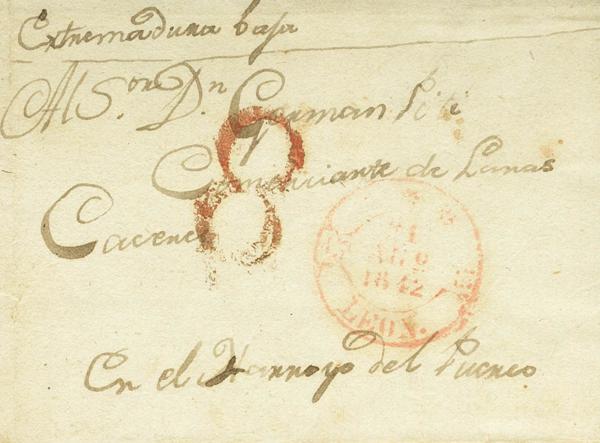 Extremadura baja
Al S.or D.n German Piti
Comerciante de Lanas
Caceres
8
21
AGO
1842
LEON.
En el Harroyo del Puerco